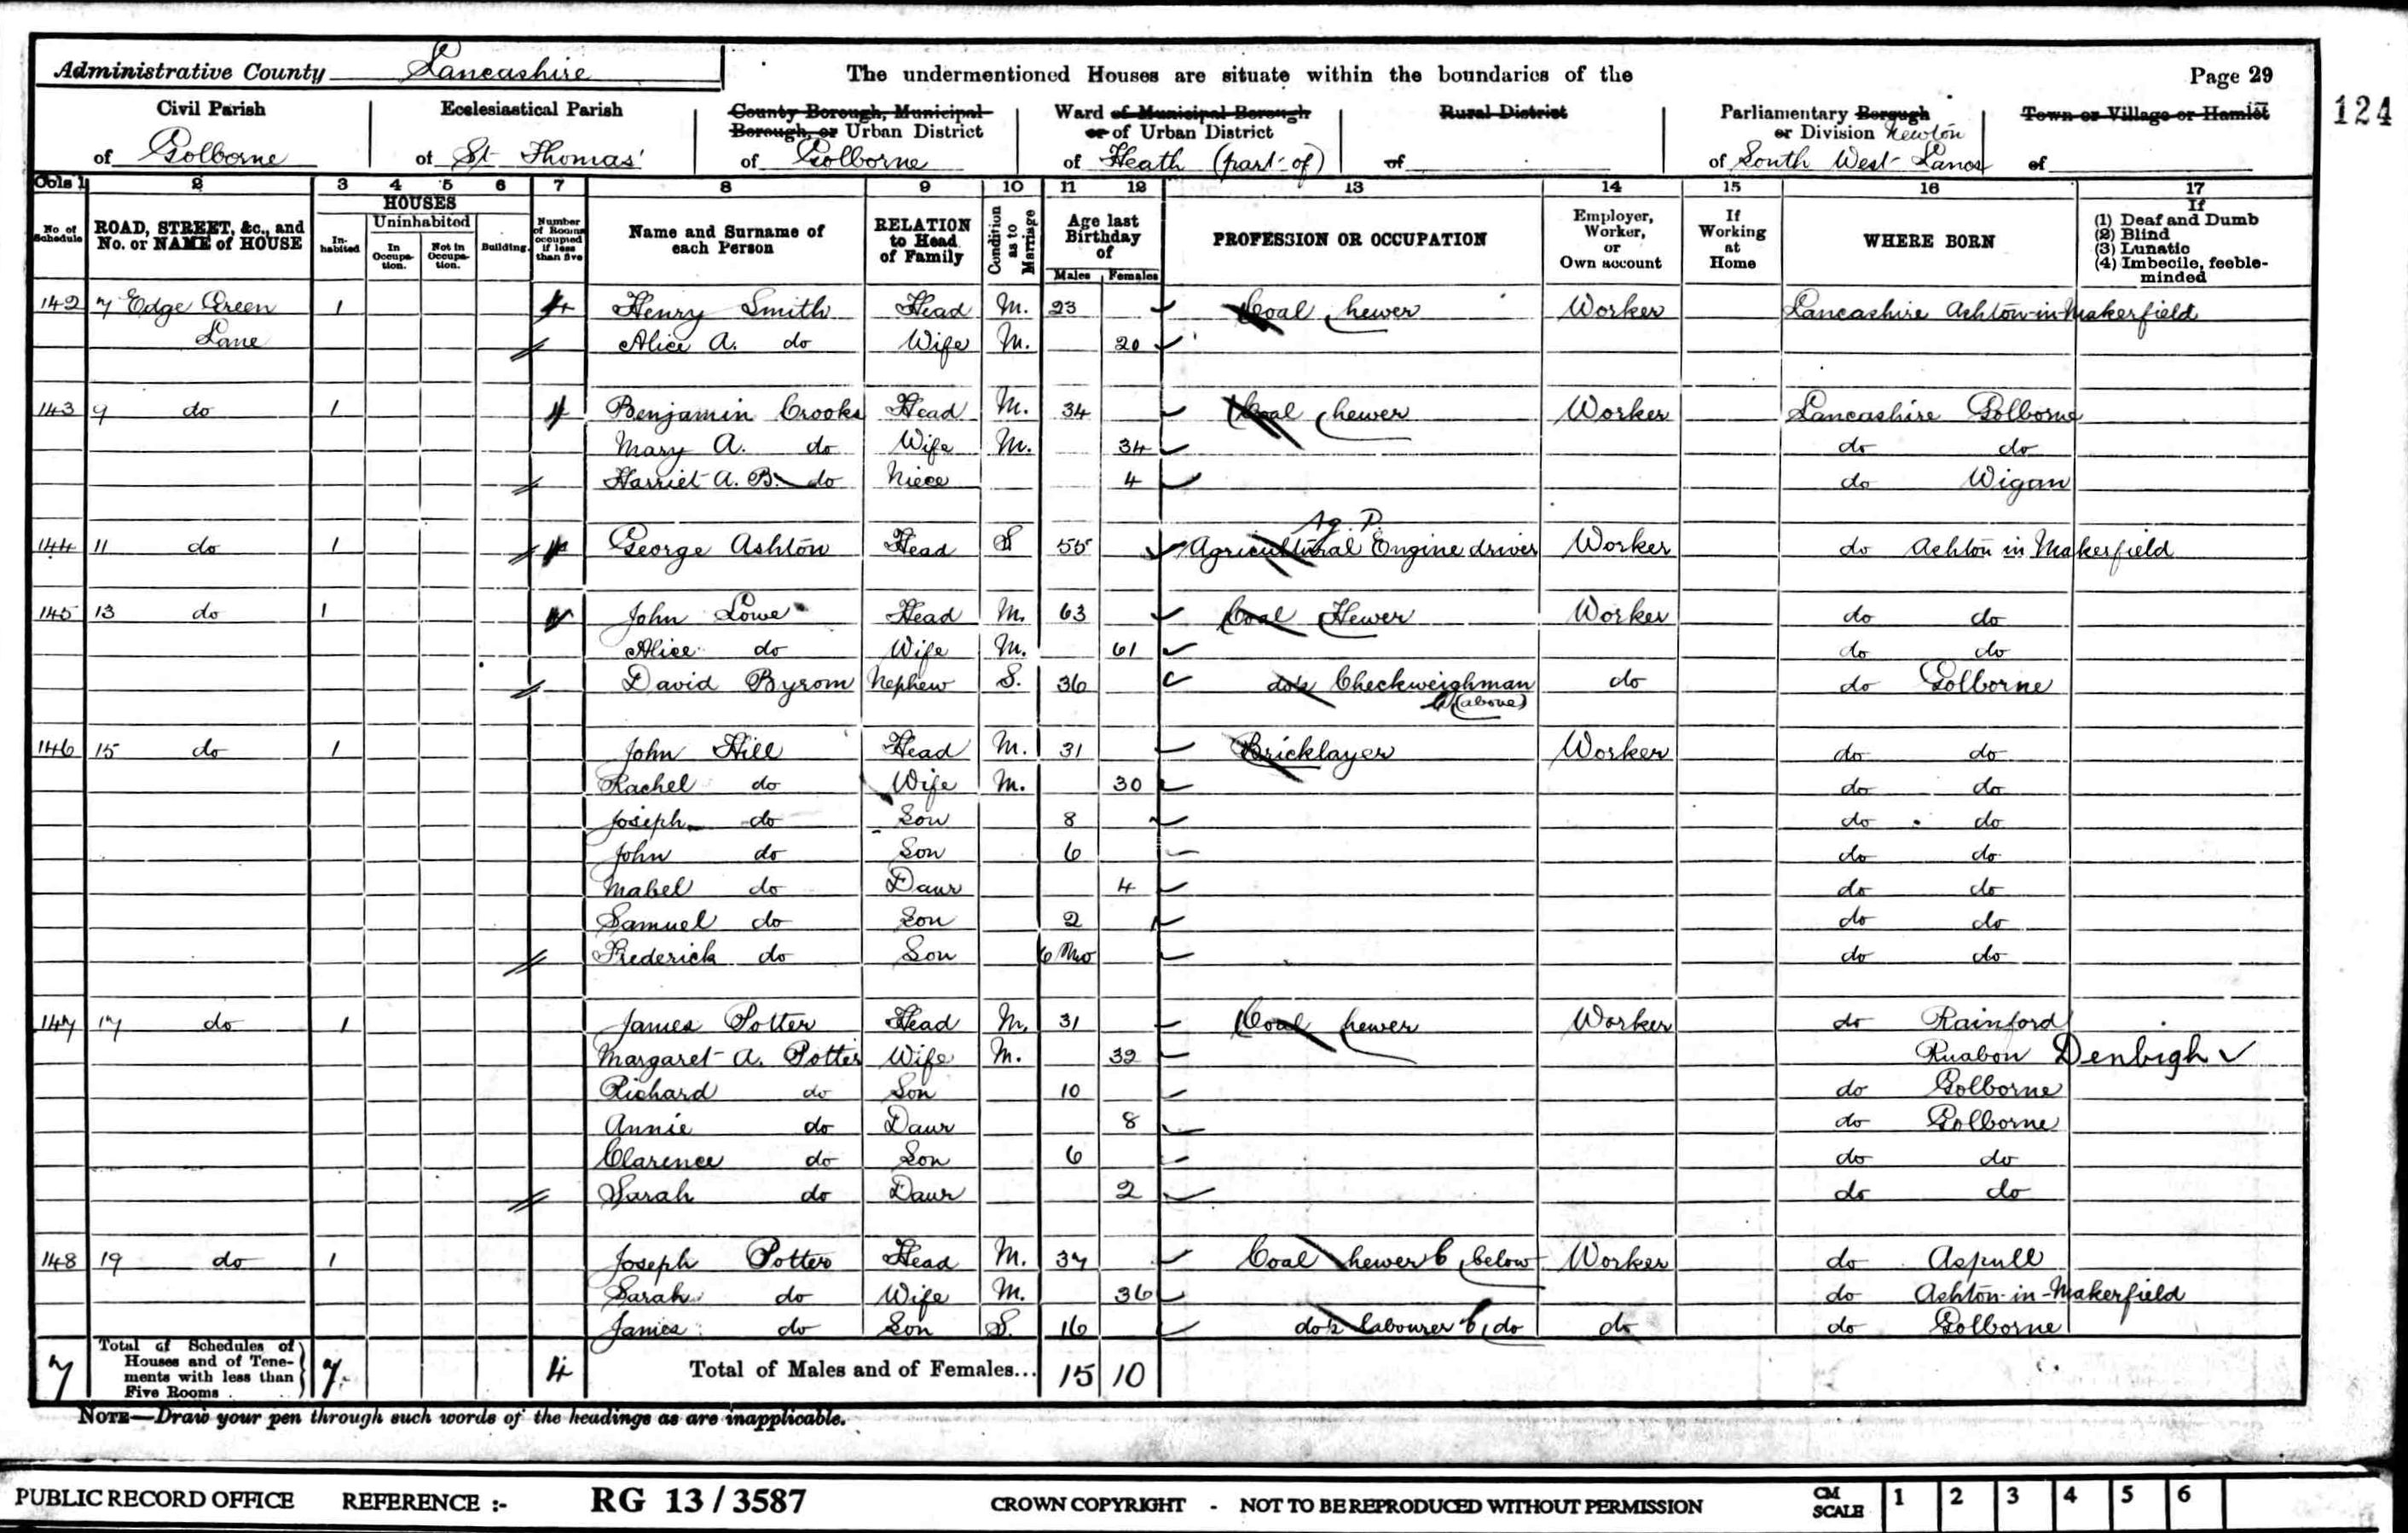 Administrative County Lancashire The undermentioned Houses are situate within the boundaries of the Page 29
124
Civil Parish of Golborne
Ecclesiastical Parish of St Thomas'
County Borough, Municipal Borough, or Urban District of Golborne
Ward of Municipal Borough or of Urban District of Heath (part of)
Rural District of
Parliamentary Borough or Division Newton of South West Lancs
Town or Village or Hamlet of
Cols 1 2 3 4 5 6 7 8 9 10 11 12 13 14 15 16 17
No. of Schedule
ROAD, STREET, &c., and No. or NAME of HOUSE
HOUSES
Inhabited
Uninhabited
In Occupation.
Not in Occupation.
Building.
Number of Rooms occupied if less than five
Name and Surname of each Person
RELATION to Head of Family
Condition as to Marriage
Age last Birthday of
Males Females
PROFESSION OR OCCUPATION
Employer, Worker, or Own account
If Working at Home
WHERE BORN
If
(1) Deaf and Dumb
(2) Blind
(3) Lunatic
(4) Imbecile, feeble-minded
142 7 Edge Green 1 4 Henry Smith Head M. 23 Coal hewer Worker Lancashire Ashton-in-Makerfield
Lane Alice A. do Wife M. 20
143 9 do 1 4 Benjamin Crooks Head M. 34 Coal hewer Worker Lancashire Golborne
Mary A. do Wife M. 34 do do
Harriet A. B. do Niece 4 do Wigan
Ag. P.
144 11 do 1 4 George Ashton Head S 55 Agricultural Engine driver Worker do Ashton in Makerfield
145 13 do 1 4 John Lowe Head M. 63 Coal Hewer Worker do do
Alice do Wife M. 61 do do
David Byrom Nephew S. 36 do Checkweighman do do Golborne
(above)
146 15 do 1 John Hill Head M. 31 Bricklayer Worker do do
Rachel do Wife M. 30 do do
Joseph do Son 8 do do
John do Son 6 do do
Mabel do Daur 4 do do
Samuel do Son 2 do do
Frederick do Son 6 Mo do do
147 17 do 1 James Potter Head M. 31 Coal hewer Worker do Rainford
Margaret A. Potter Wife M. 32 Ruabon Denbigh
Richard do Son 10 do Golborne
Annie do Daur 8 do Golborne
Clarence do Son 6 do do
Sarah do Daur 2 do do
148 19 do 1 Joseph Potter Head M. 37 Coal hewer below Worker do Aspull
Sarah do Wife M. 36 do Ashton-in-Makerfield
James do Son S. 16 do labourer do do do Golborne
7 Total of Schedules of Houses and of Tenements with less than Five Rooms 7 4 Total of Males and of Females... 15 10
NOTE—Draw your pen through such words of the headings as are inapplicable.
PUBLIC RECORD OFFICE REFERENCE :- RG 13 / 3587 CROWN COPYRIGHT - NOT TO BE REPRODUCED WITHOUT PERMISSION CM SCALE 1 2 3 4 5 6